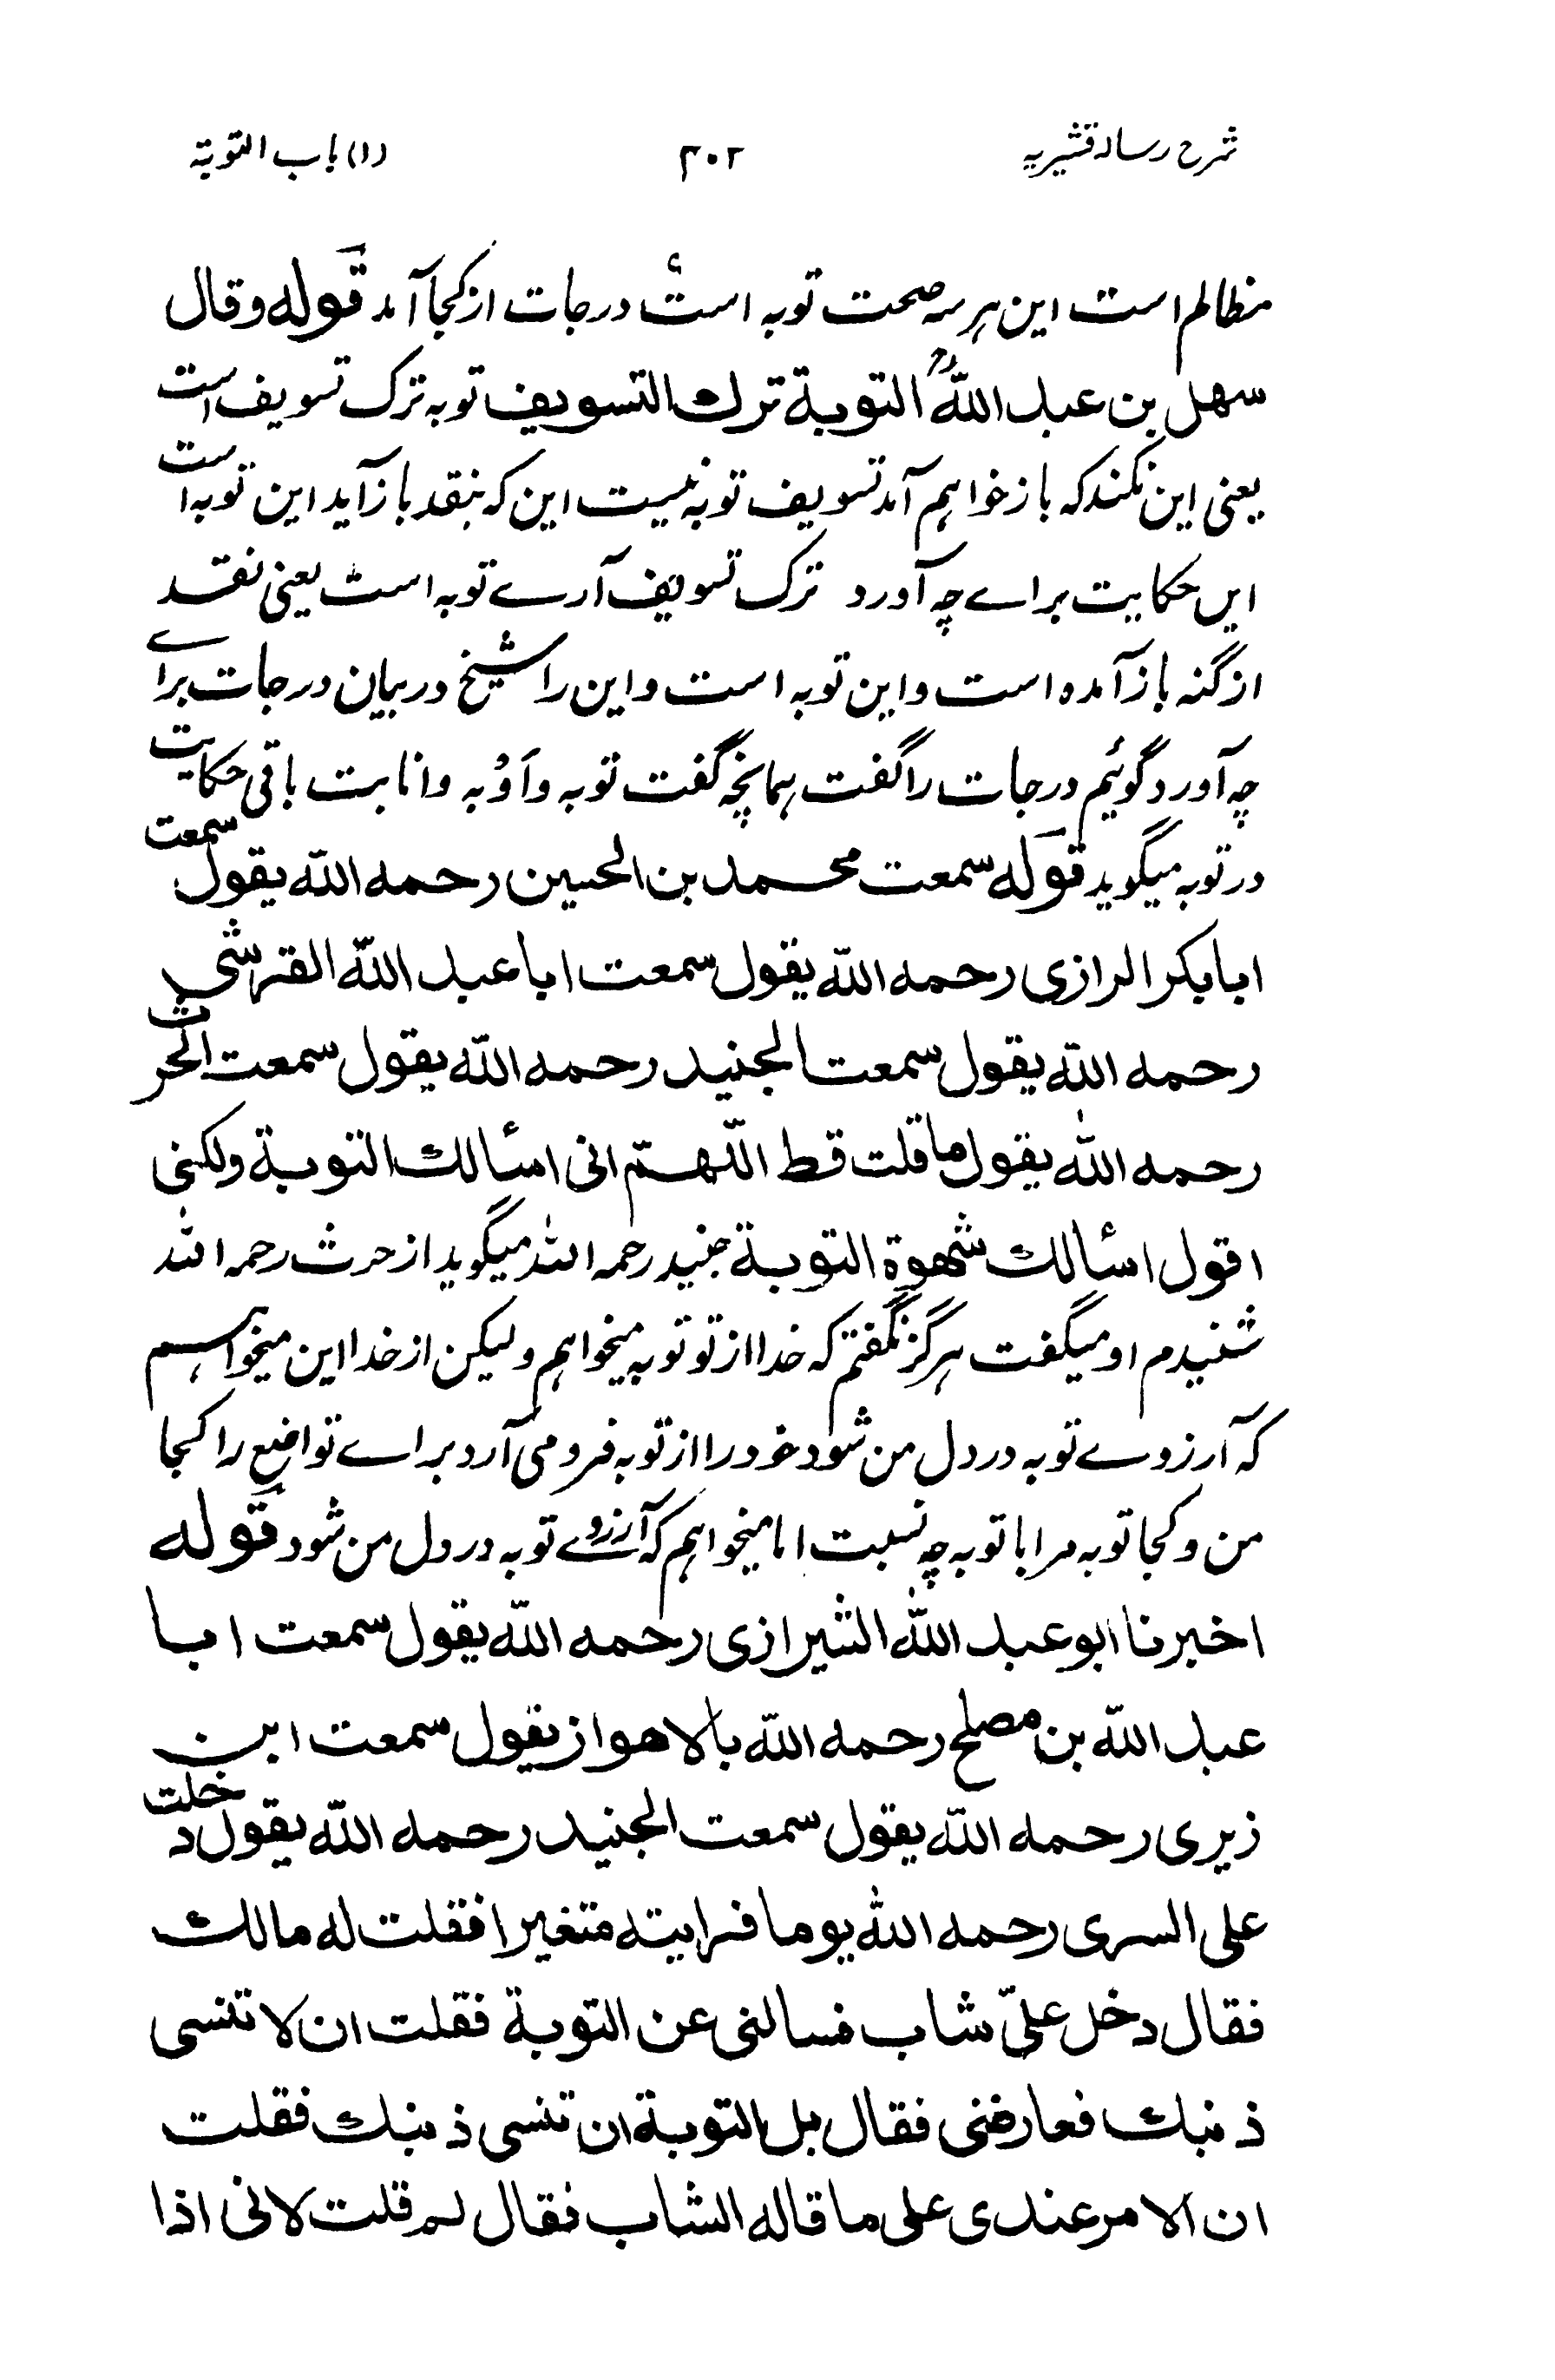 شرح رساله قشیریه ۳۰۲ (۱) باب التوبة
مظالم است این هر سه صحت توبه است درجات از کجا آمد قوله وقال
سهل بن عبد اللهؒ التوبة ترك التسويف توبه ترک تسویف است
یعنی این نکند که باز خواهم آمد تسویف توبه نیست این که بنقد باز آید این توبه است
ایں حکایت براے چہ آورد ترک تسویف آرے توبه است یعنی نقد
از گنه باز آمده است و این توبه است و این را شیخ در بیان درجات براے
چہ آورد گوئیم درجات را گفت ہمانچہ گفت توبه و اَوْبه و انابت باقی حکایت
در توبه میگوید قوله سمعت محمد بن الحسين رحمه الله يقول سمعت
ابا بكر الرازى رحمه الله يقول سمعت ابا عبد الله القرشى
رحمه الله يقول سمعت الجنيد رحمه الله يقول سمعت الحرث
رحمه الله يقول ما قلت قط اللّهم انى اسئالك التوبة ولكنى
اقول اسئالك شهوة التوبة جنید رحمه الله میگوید از حرث رحمه الله
شنیدم او میگفت ہرگز نگفتم که خدا از تو توبه میخواہم ولیکن از خدا این میخواہم
که آرزوے توبه در دل من شود خود را از توبه فرو می آرد براے تواضع را کجا
من و کجا توبه مرا با توبه چہ نسبت اما میخواہم که آرزوے توبه در دل من شود قوله
اخبرنا ابو عبد الله الشيرازى رحمه الله يقول سمعت ابا
عبد الله بن مصلح رحمه الله بالاهواز يقول سمعت ابن
زيرى رحمه الله يقول سمعت الجنيد رحمه الله يقول دخلت
على السرى رحمه الله يوما فرايته متغيرا فقلت له مالك
فقال دخل علىّ شاب فسالنى عن التوبة فقلت ان لا تنسى
ذنبك فعارضنى فقال بل التوبة ان تنسى ذنبك فقلت
ان الامر عندى على ما قاله الشاب فقال لم قلت لانى اذا